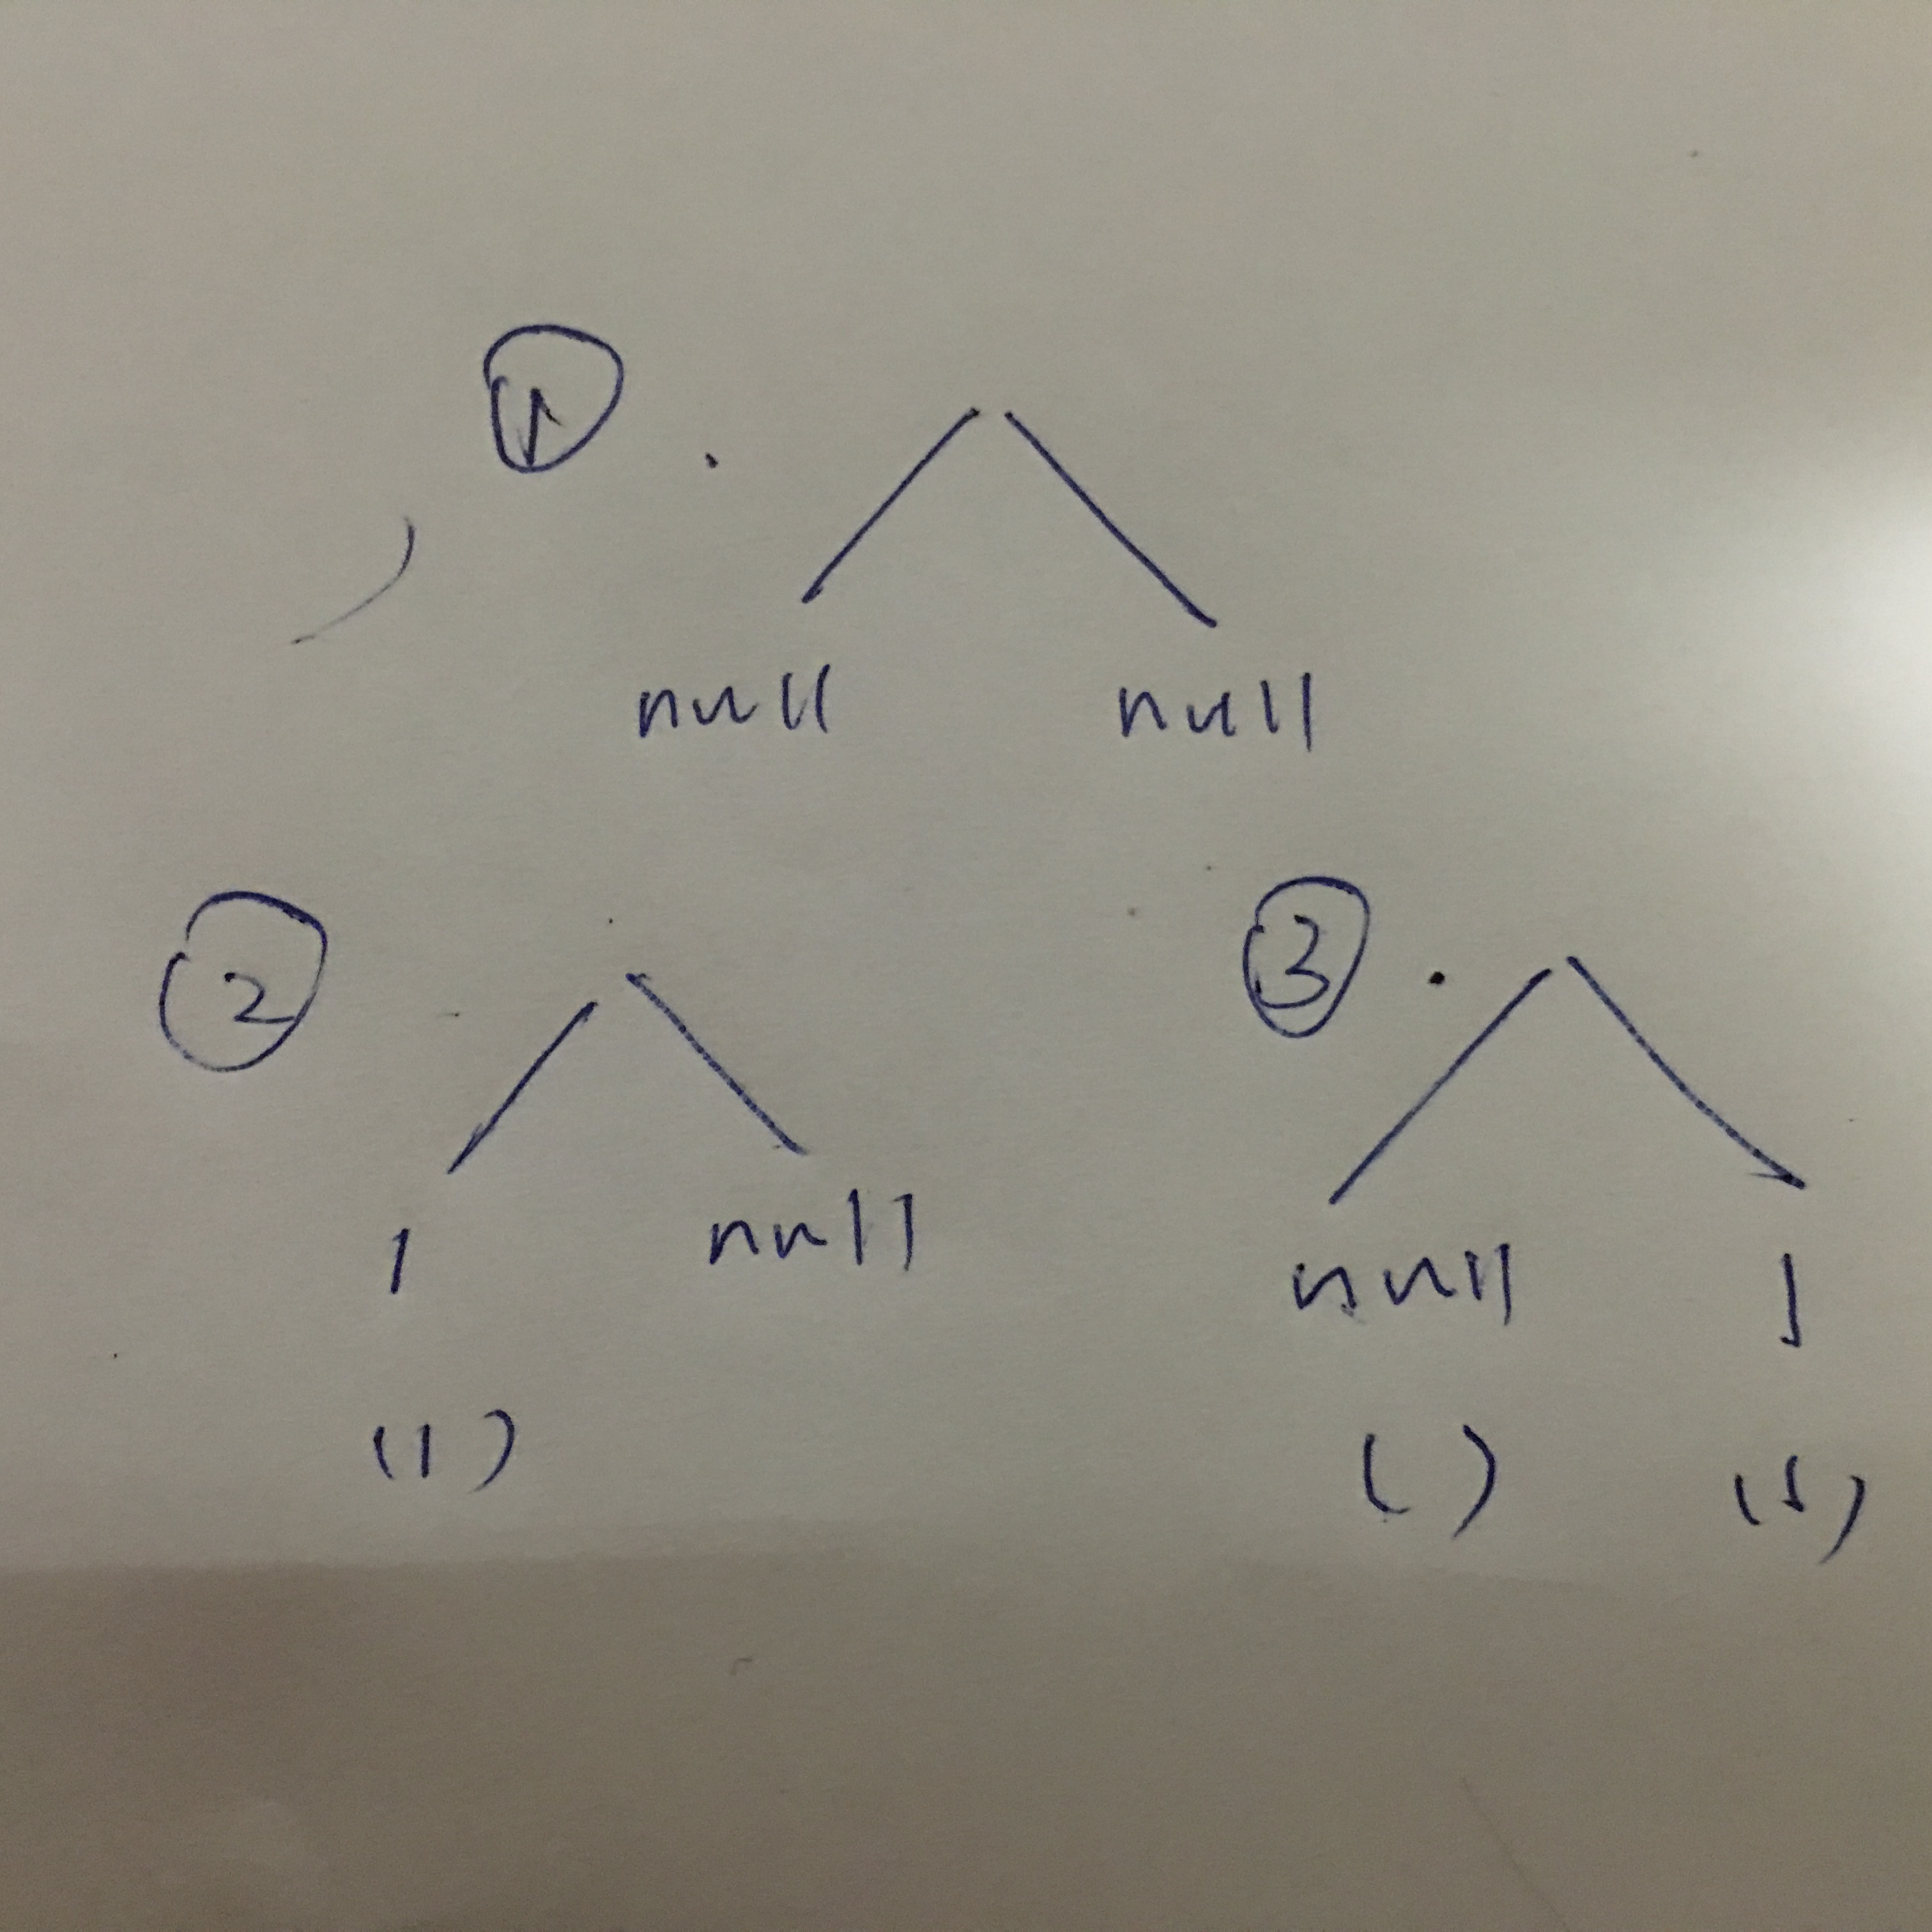 ①
null null
② ③
1 null null 1
(1) () (1)